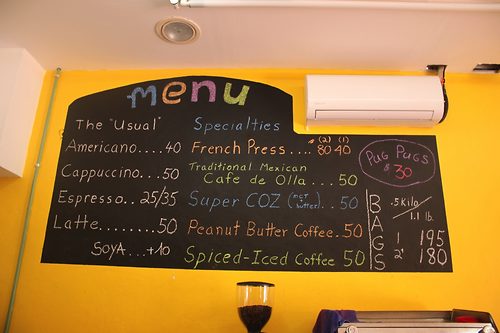 menu
The "Usual"
Americano....40
Cappuccino....50
Espresso..25/35
Latte........50
SOYA...+10
Specialties
(2) (1)
French Press.... 80 40
Traditional Mexican
Cafe de Olla....50
Super COZ (nut butter)..50
Peanut Butter Coffee.50
Spiced-Iced Coffee 50
Pug Pugs
$30
BAGS
.5 Kilo/1.1 lb.
1 195
2+ 180